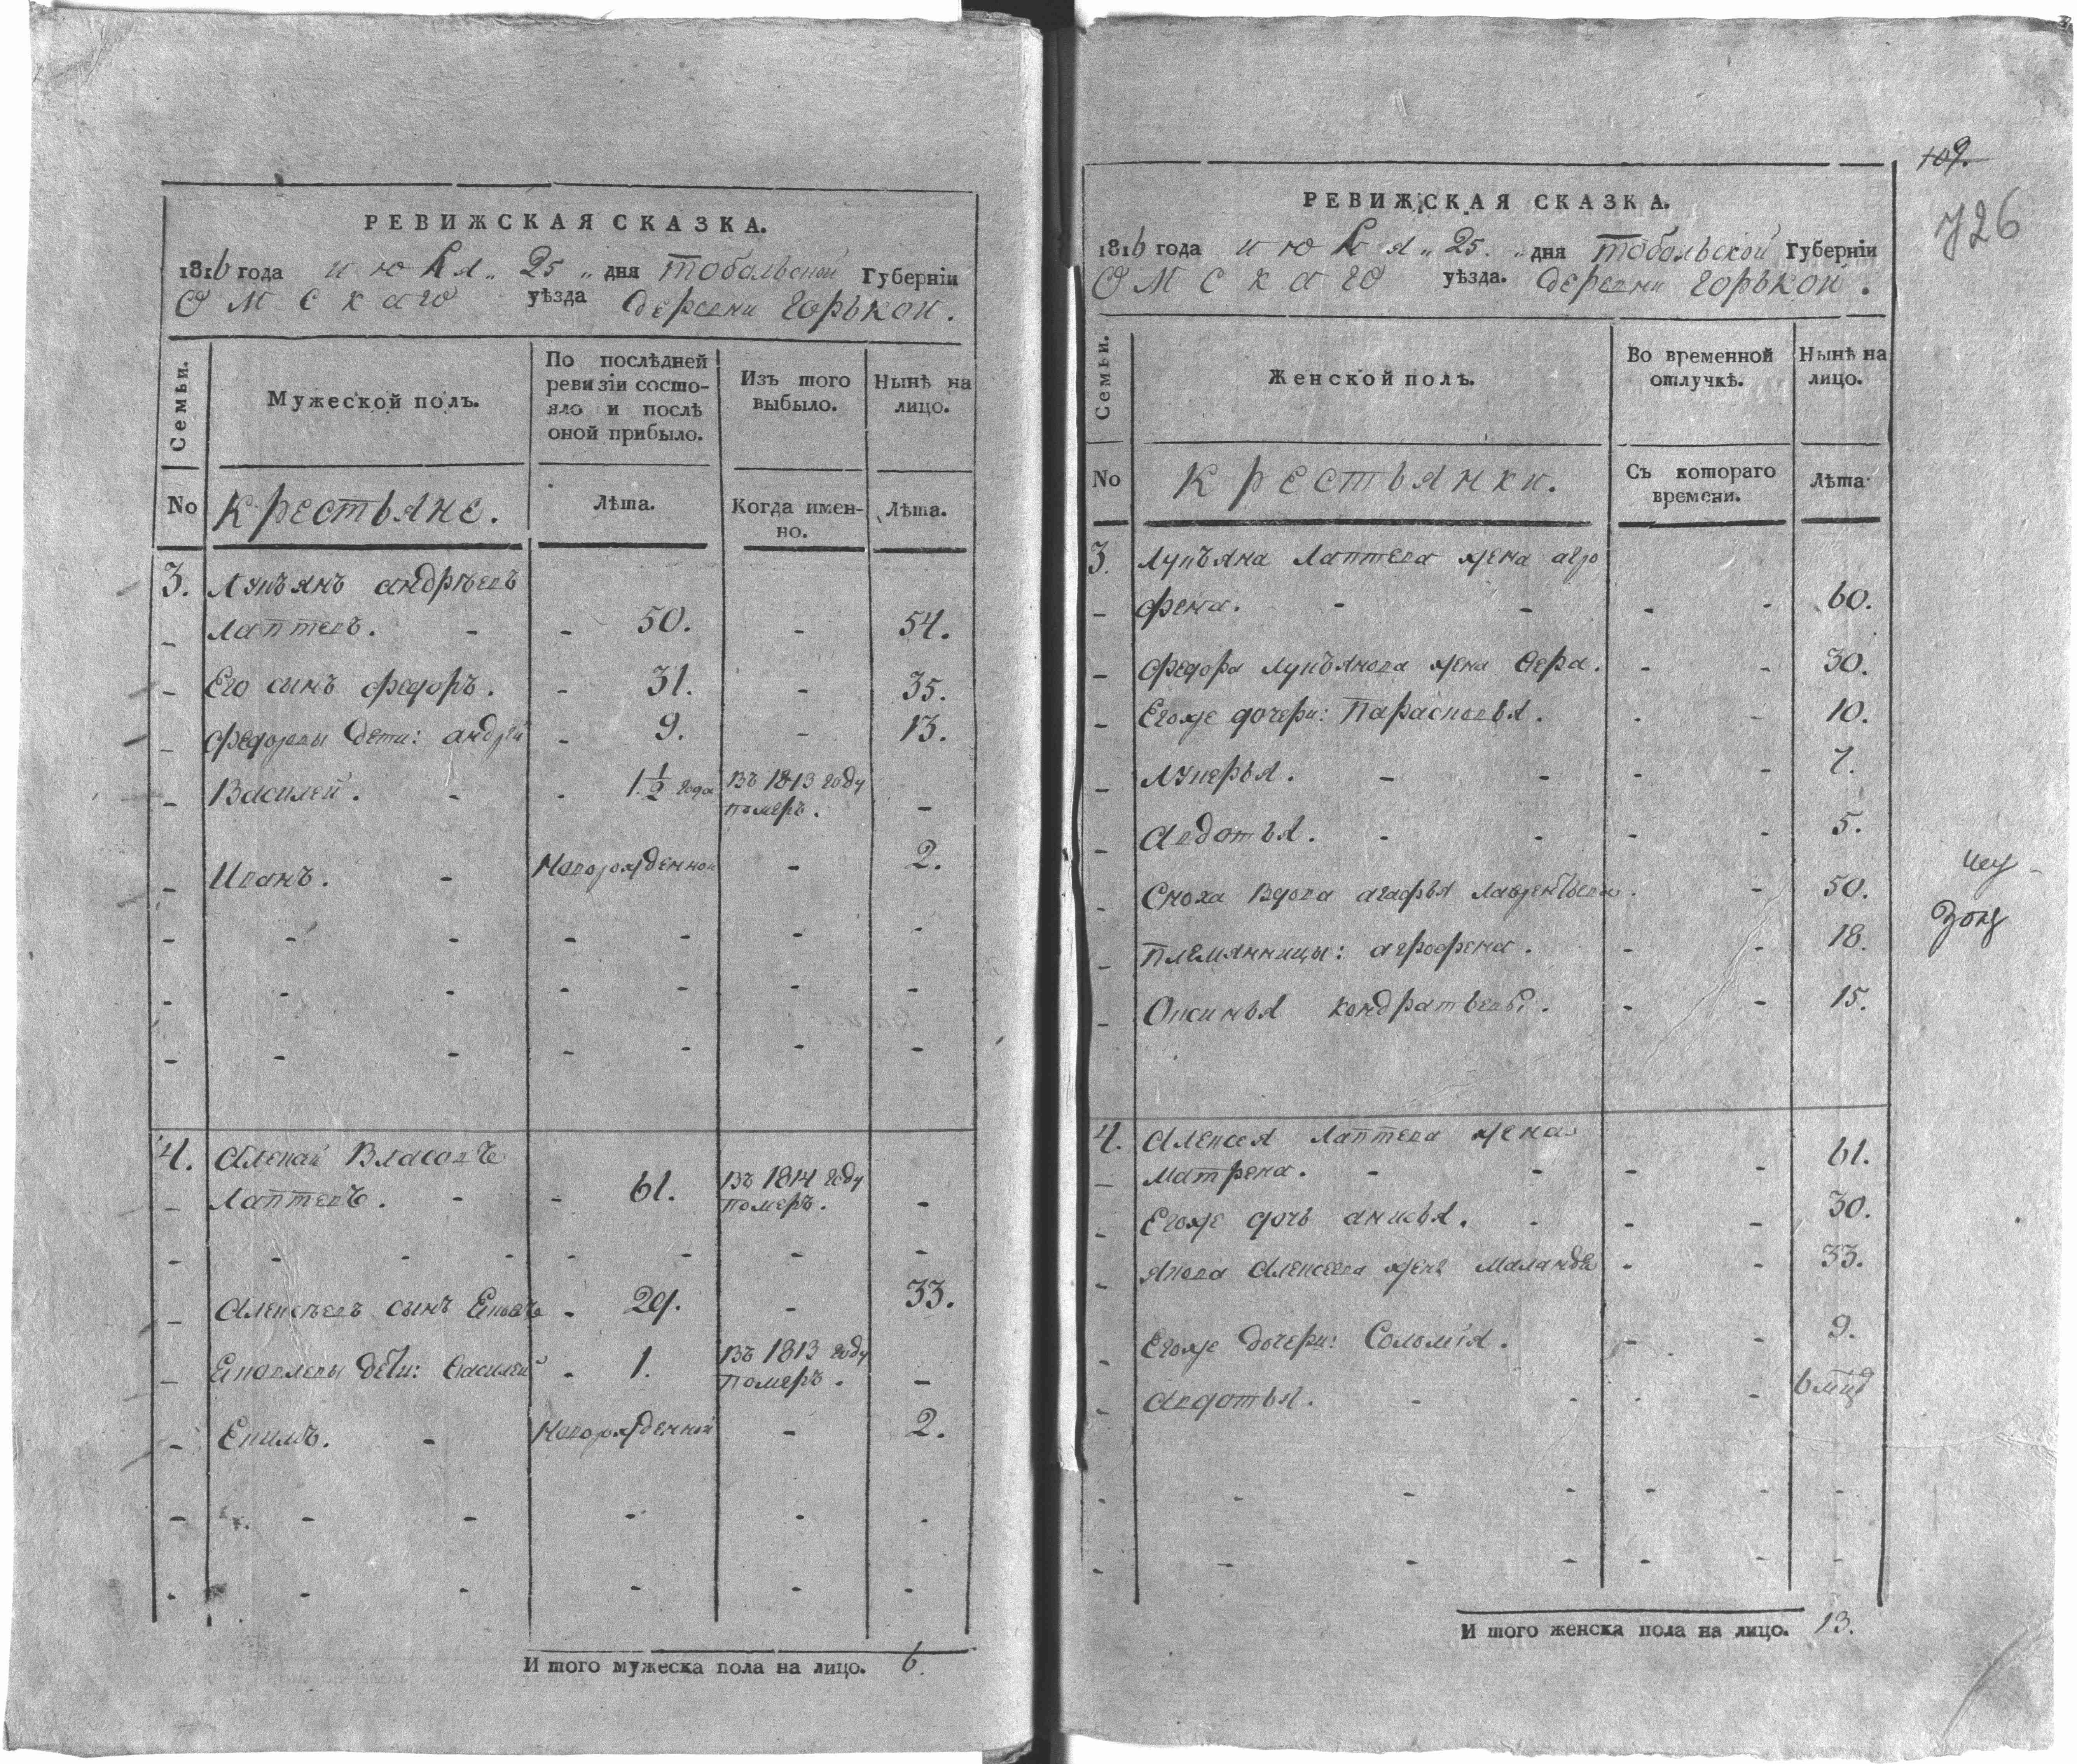 РЕВИЖСКАЯ СКАЗКА.
1816 года июля 25 дня Тобольской Губернїи
Омскаго уѣзда деревни Горькой.
Семьи.
Мужеской полъ.
По послѣдней ревизїи состояло и послѣ оной прибыло.
Изъ того выбыло.
Нынѣ на лицо.
No
Крестьяне.
Лѣта.
Когда именно.
Лѣта.
3. Лупъянъ андрѣевъ
Лаптевъ. - - 50. - 54.
Его сынъ федоръ. - 31. - 35.
федоровы дети: андрей - 9. - 13.
Василей. - - 1 1/2 года Въ 1813 году
померъ. -
Иванъ. - Новорожденной - 2.
4. Алексей Власовъ
Лаптевъ. - - 61. Въ 1814 году
померъ. -
Алексѣевъ сынъ - 29. - 33.
дети: Василей - 1. Въ 1813 году
померъ. -
Екимъ. - Новорожденной - 2.
И того мужеска пола на лицо. 6.
109.
726
РЕВИЖСКАЯ СКАЗКА.
1816 года июля 25. дня Тобольской Губернїи
Омскаго уѣзда. деревни Горькой.
Семьи.
Женской полъ.
Во временной отлучкѣ.
Нынѣ на лицо.
No
Крестьянки.
Съ котораго времени.
Лѣта
3. Лупъяна Лаптева жена агро
фена. - - - - 60.
федора Лупъянова жена Вера. - - 30.
Егоже дочери: Парасковья. - - 10.
Лукерья. - - - - 7.
Авдотья. - - - - 5.
Сноха вдова агафья Лаврентьева. - 50.
Племянницы: агрофена. - - 18.
Оксинья кондратьевы. - - 15.
4. Алексея Лаптева жена
Матрена. - - - - 61.
Егоже дочь анисья. - - - 30.
Алексеева жена Маландья - - 33.
Егоже дочери: Соломїя. - - 9.
Авдотья. - - - -
И того женска пола на лицо. 13.